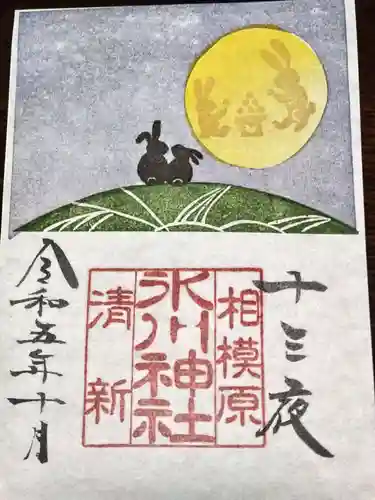 十三夜
相模原
氷川神社
清新
令和五年十月